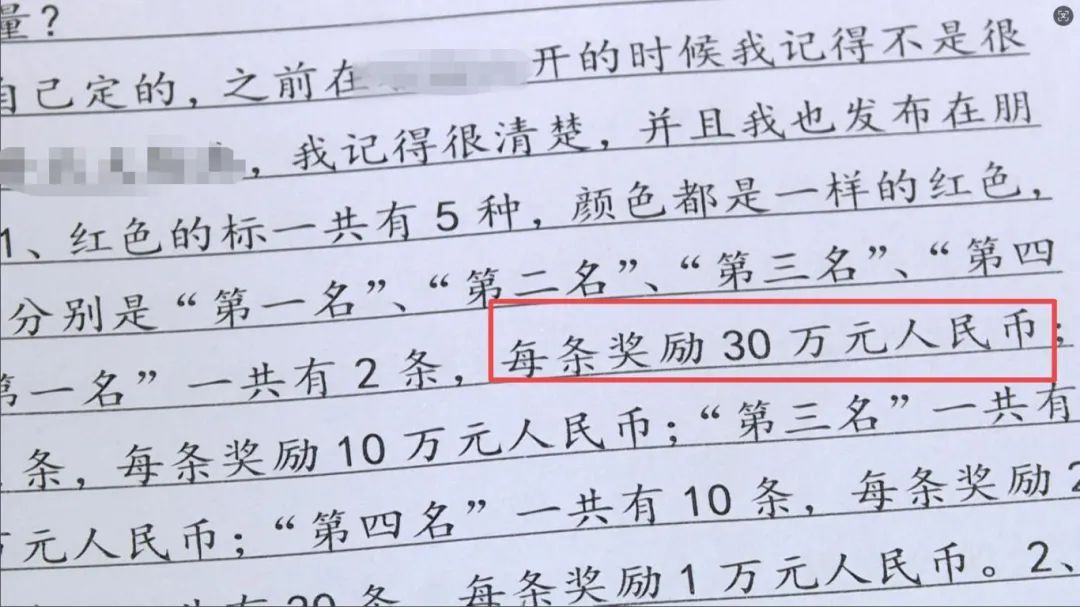 量？
自己定的，之前在 开的时候我记得不是很
，我记得很清楚，并且我也发布在朋
1、红色的标一共有 5 种，颜色都是一样的红色，
分别是“第一名”、“第二名”、“第三名”、“第四
第一名”一共有 2 条，每条奖励 30 万元人民币；
条，每条奖励 10 万元人民币；“第三名”一共有
万元人民币；“第四名”一共有 10 条，每条奖励 2
共有 20 条，每条奖励 1 万元人民币。2、